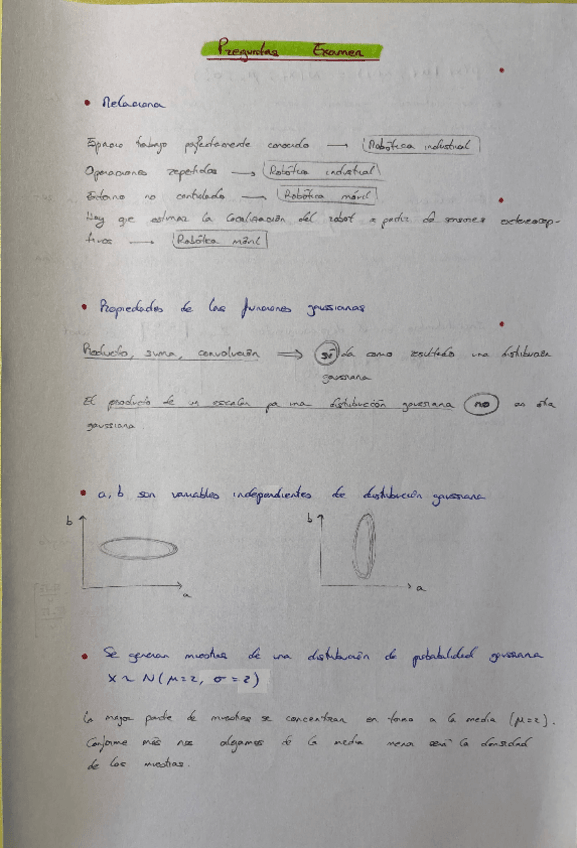 Preguntas Examen
• Relaciona
Espacio trabajo perfectamente conocido → Robótica industrial
Operaciones repetidas → Robótica industrial
Entorno no controlado → Robótica móvil
Hay que estimar la localización del robot a partir de sensores exterocep-
tivos → Robótica móvil
• Propiedades de las funciones gaussianas
Producto, suma, convolución ⇒ sí da como resultado una distribución
gaussiana
El producto de un escalar por una distribución gaussiana no es otra
gaussiana.
• a, b son variables independientes de distribución gaussiana
b b
a a
• Se generan muestras de una distribución de probabilidad gaussiana
X ~ N(μ=2, σ=2)
La mayor parte de muestras se concentran en torno a la media (μ=2).
Conforme más nos alejamos de la media menor será la densidad
de las muestras.